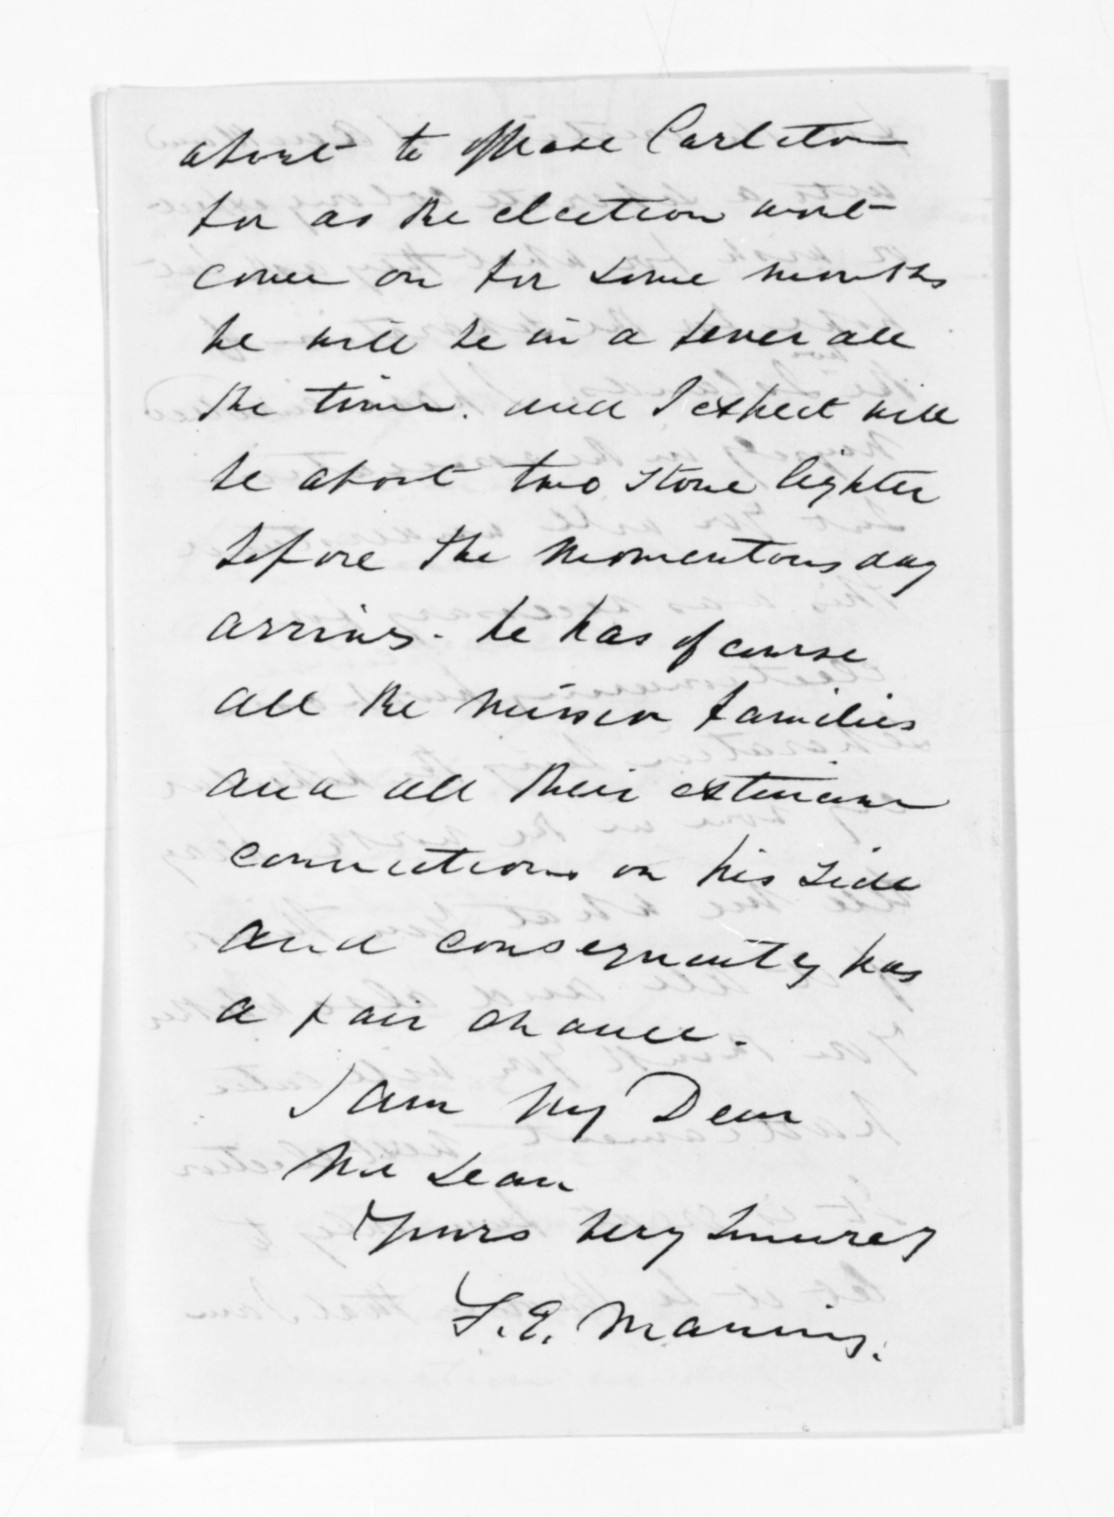 about to oppose Carleton
for as the election wont
come on for some months
he will be in a fever all
the time. and I expect will
be about two stone lighter
before the momentous day
arrives. he has of course
all the mission families
and all their extensive
connections on his side
and consequently has
a fair chance.
I am My Dear
McLean
Yours very Sincerely
F. E. Maning.